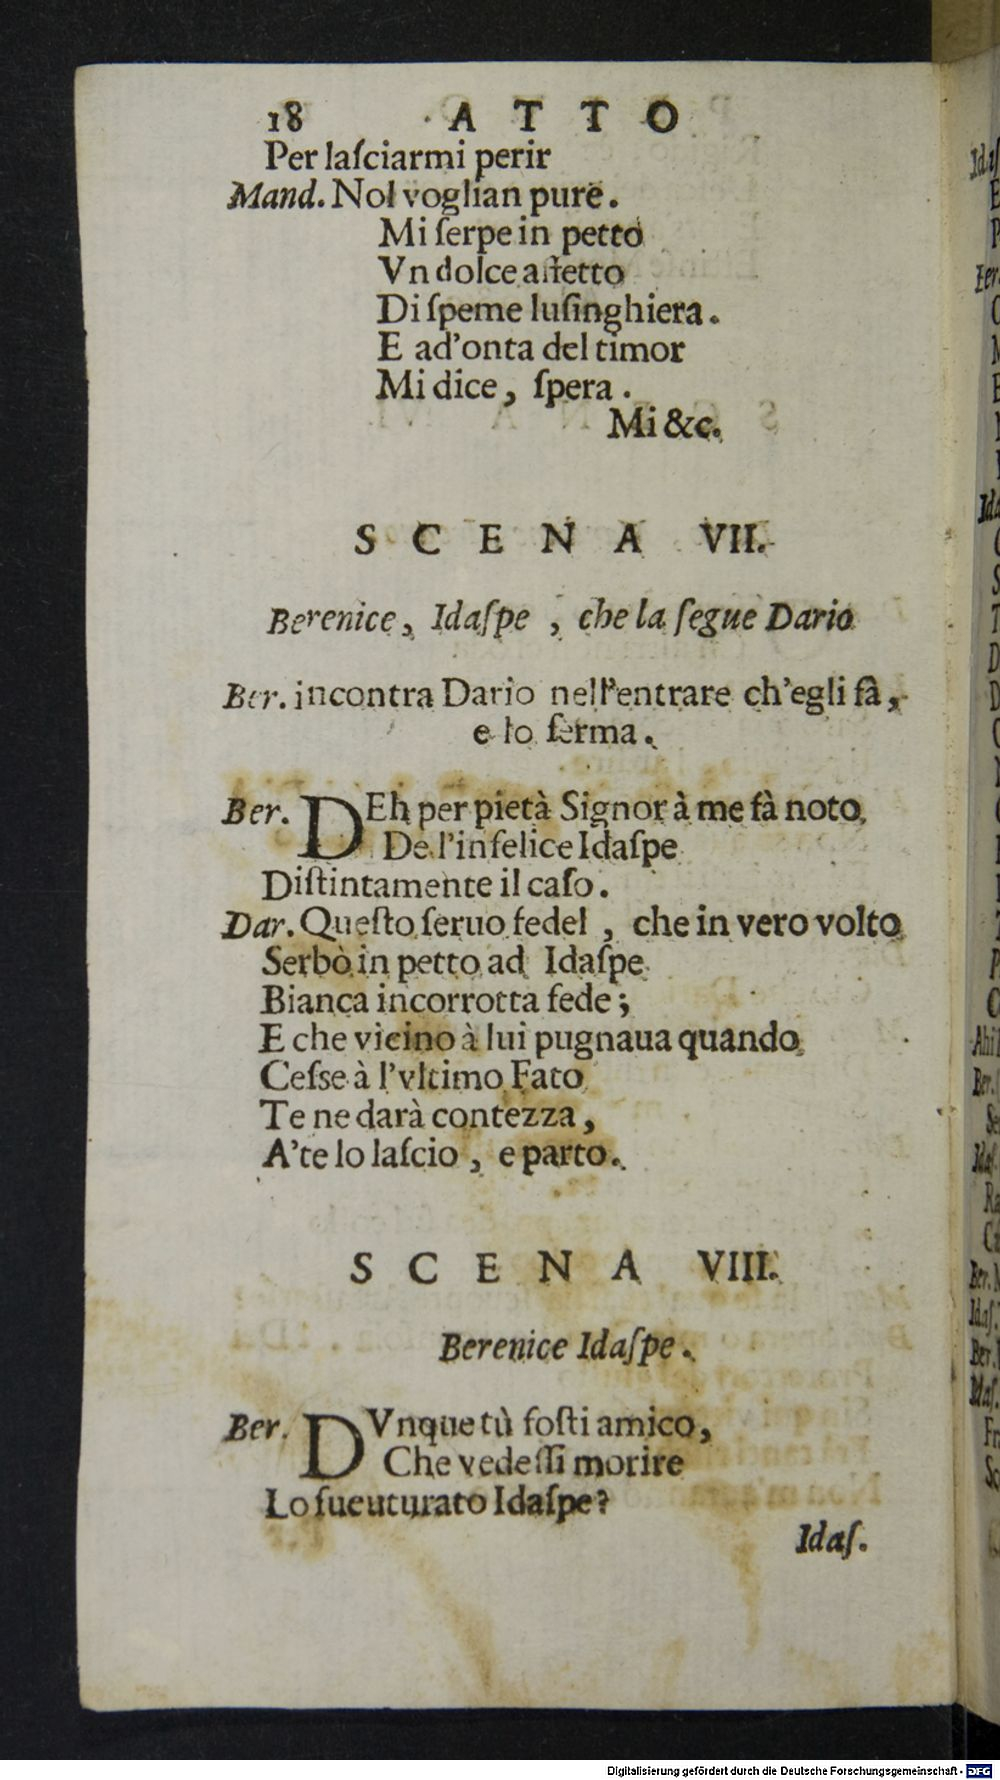 18 ATTO
Per laſciarmi perir
Mand. Nol voglian pure.
Mi ſerpe in petto
Vn dolce affetto
Di ſpeme luſinghiera.
E ad'onta del timor
Mi dice, ſpera.
Mi &c.
SCENA VII.
Berenice, Idaſpe, che la ſegue Dario
Ber. incontra Dario nell'entrare ch'egli fà,
e lo ferma.
Ber. DEh per pietà Signor à me fà noto
De l'infelice Idaſpe
Diſtintamente il caſo.
Dar. Queſto ſeruo fedel, che in vero volto
Serbò in petto ad Idaſpe
Bianca incorrotta fede;
E che vicino à lui pugnaua quando
Ceſse à l'vltimo Fato
Te ne darà contezza,
A'te lo laſcio, e parto.
SCENA VIII.
Berenice Idaſpe.
Ber. DVnque tù foſti amico,
Che vedeſſi morire
Lo ſueuturato Idaſpe?
Idaſ.
Digitalisierung gefördert durch die Deutsche Forschungsgemeinschaft - DFG